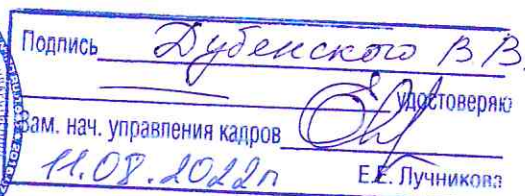 Подпись Дубенского В В.
удостоверяю
Зам. нач. управления кадров
11.08.2022г Е.Е. Лучникова